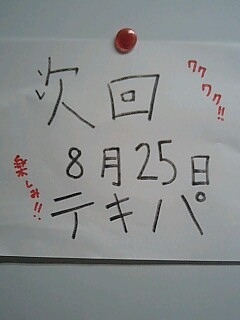 次回
ワク
ワク!!
8月25日
楽しみ!!
テキパ